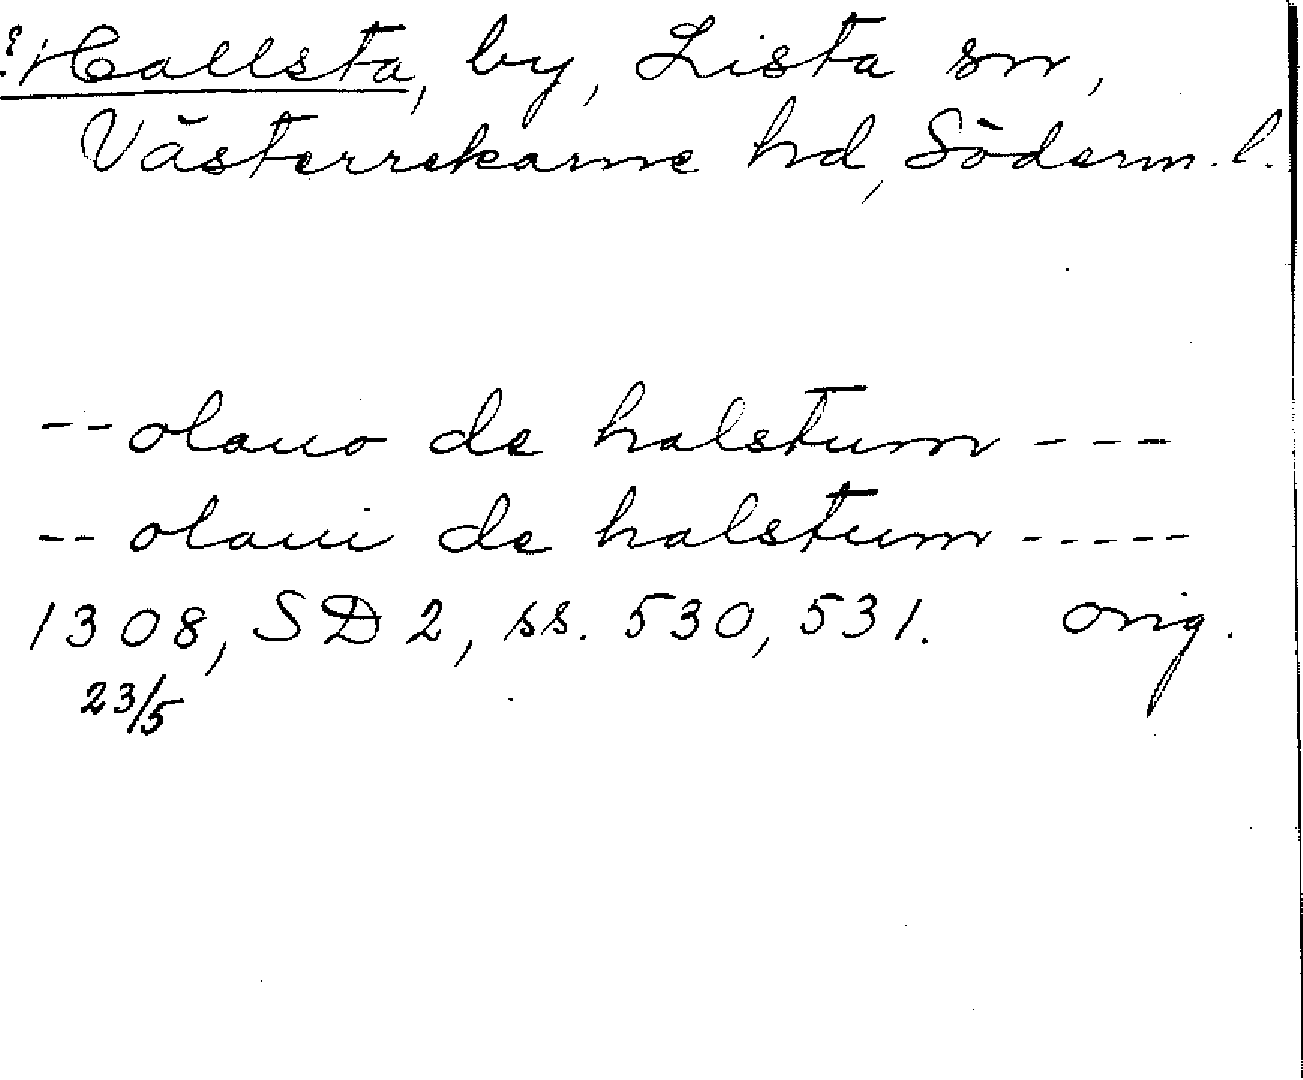 Hallsta, by, Lista sn,
Västerrekarne hd, Söderm. l.
-- olauo de halstum ---
-- olaui de halstum -----
1308, SD 2, ss. 530, 531. orig.
23/5